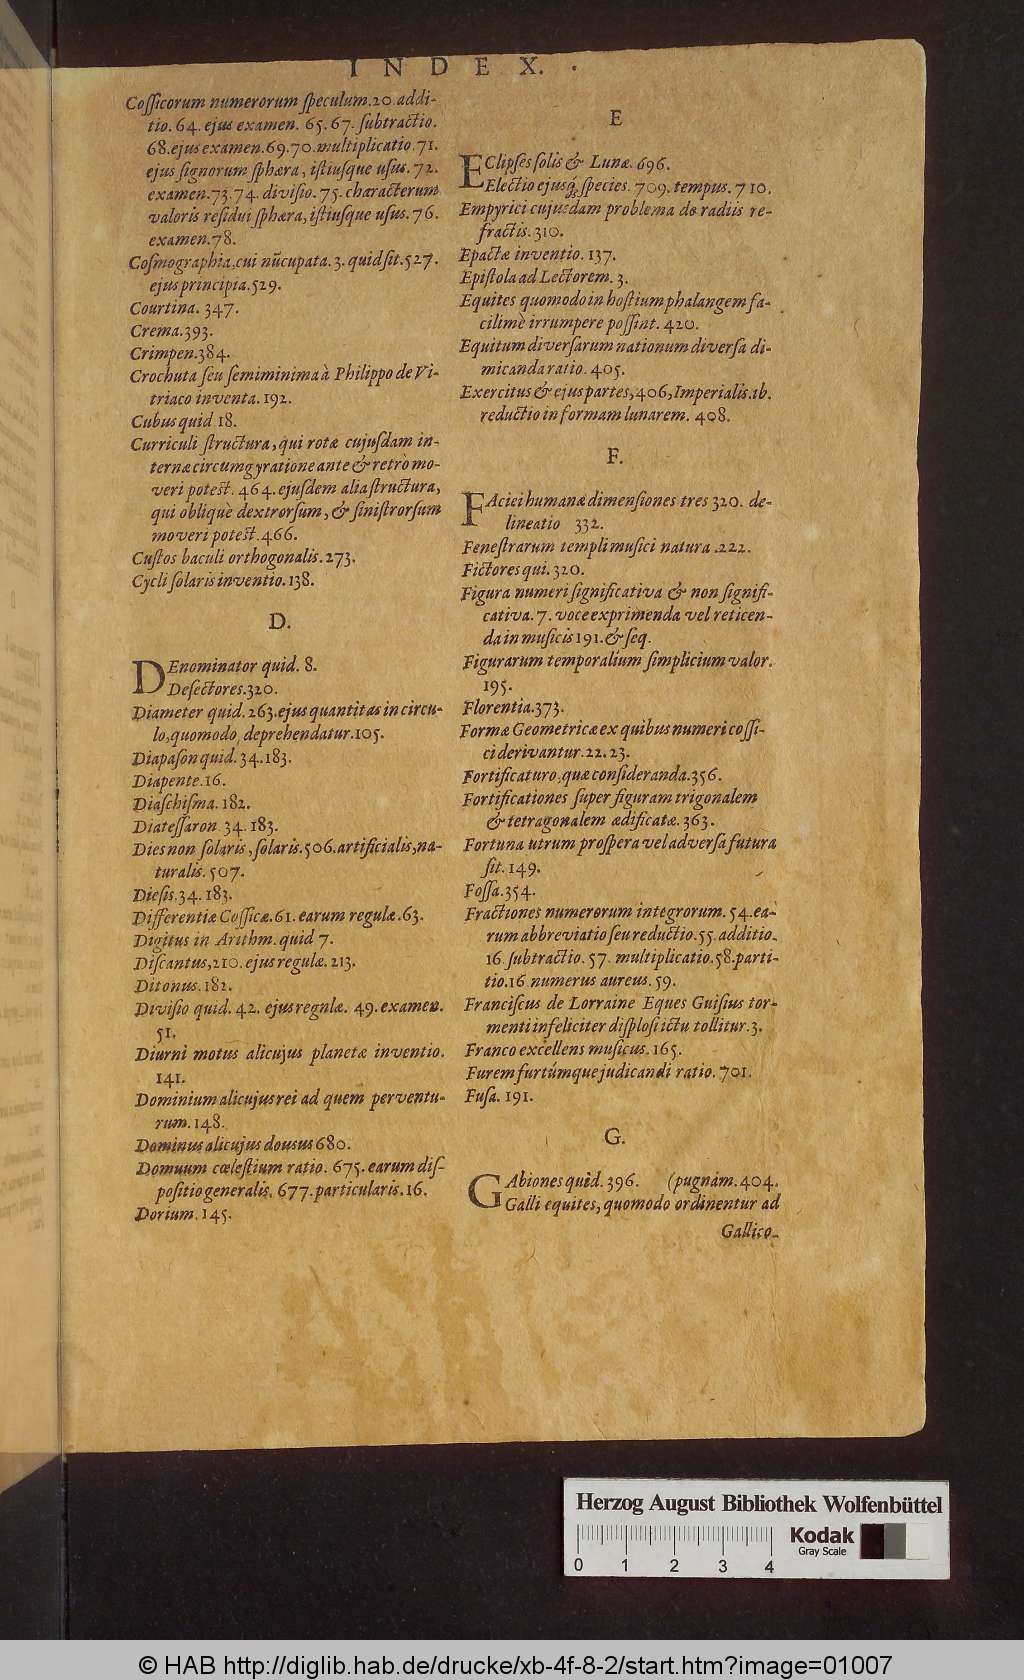 INDEX.
Cossicorum numerorum speculum.20 addi-
tio. 64. ejus examen. 65. 67. subtractio.
68.ejus examen.69.70.multiplicatio.71.
ejus signorum sphæra, istiusque usus. 72.
examen.73.74. divisio. 75. characterum
valoris residui sphæra, istiusque usus. 76.
examen.78.
Cosmographia,cui nũcupata. 3. quid sit.527.
ejus principia.529.
Courtina. 347.
Crema.393.
Crimpen.384.
Crochuta seu semiminima à Philippo de Vi-
triaco inventa. 192.
Cubus quid 18.
Curriculi structura, qui rotæ cujusdam in-
ternæ circumgyratione ante & retrò mo-
veri potest. 464. ejusdem alia structura,
qui obliquè dextrorsum, & sinistrorsum
moveri potest.466.
Custos baculi orthogonalis.273.
Cycli solaris inventio.138.
D.
DEnominator quid. 8.
Desectores.320.
Diameter quid. 263.ejus quantitas in circu-
lo,quomodo, deprehendatur.105.
Diapason quid. 34.183.
Diapente.16.
Diaschisma. 182.
Diatessaron. 34. 183.
Dies non solaris, solaris.506.artificialis,na-
turalis. 507.
Diesis.34. 183.
Differentiæ Cossicæ.61. earum regulæ.63.
Digitus in Arithm. quid 7.
Discantus,210. ejus regulæ. 213.
Ditonus. 182.
Divisio quid. 42. ejus regulæ. 49. examen.
51.
Diurni motus alicujus planetæ inventio.
141.
Dominium alicujus rei ad quem perventu-
rum.148.
Dominus alicujus domus 680.
Domuum cœlestium ratio. 675. earum dis-
positio generalis. 677.particularis.16.
Dorium.145.
E
EClipses solis & Lunæ. 696.
Electio ejusq́; species. 709. tempus. 710.
Empyrici cujusdam problema de radiis re-
fractis. 310.
Epactæ inventio. 137.
Epistola ad Lectorem. 3.
Equites quomodo in hostium phalangem fa-
cilimè irrumpere possint. 420.
Equitum diversarum nationum diversa di-
micanda ratio. 405.
Exercitus & ejus partes,406,Imperialis.ib.
reductio in formam lunarem. 408.
F.
FAciei humanæ dimensiones tres 320. de-
lineatio 332.
Fenestrarum templi musici natura .222.
Fictores qui.320.
Figura numeri significativa & non signifi-
cativa. 7. voce exprimenda vel reticen-
da in musicis 191.& seq.
Figurarum temporalium simplicium valor.
195.
Florentia.373.
Formæ Geometricæ ex quibus numeri cossi-
ci derivantur.22.23.
Fortificaturo,quæ consideranda.356.
Fortificationes super figuram trigonalem
& tetragonalem ædificatæ. 363.
Fortuna utrum prospera vel adversa futura
sit. 149.
Fossa.354.
Fractiones numerorum integrorum. 54. ea-
rum abbreviatio seu reductio.55. additio.
16. subtractio. 57. multiplicatio.58.parti-
tio.16 numerus aureus. 59.
Franciscus de Lorraine Eques Guisius tor-
menti infeliciter displosi ictu tollitur.3.
Franco excellens musicus.165.
Furem furtúmque judicandi ratio. 701.
Fusa. 191.
G.
GAbiones quid. 396. (pugnam. 404.
Galli equites, quomodo ordinentur ad
Gallico-
Herzog August Bibliothek Wolfenbüttel
Kodak
Gray Scale
0 1 2 3 4
© HAB http://diglib.hab.de/drucke/xb-4f-8-2/start.htm?image=01007